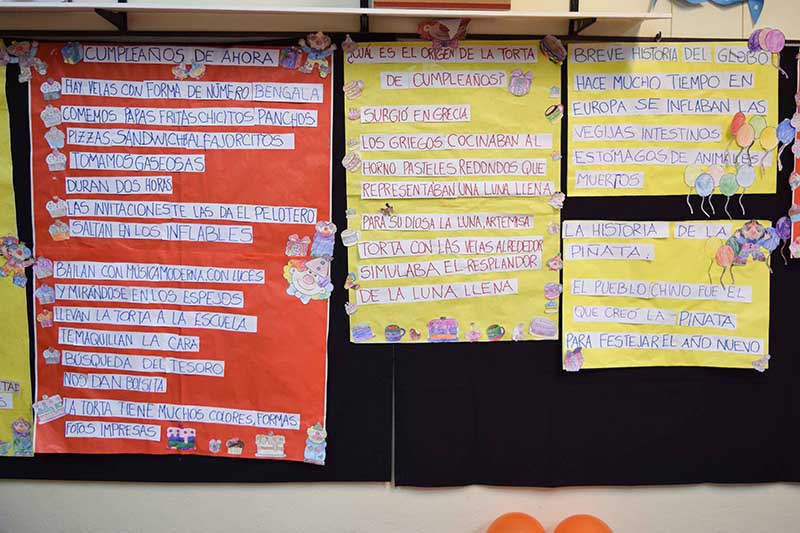 CUMPLEAÑOS DE AHORA
HAY VELAS CON FORMA DE NÚMERO BENGALA
COMEMOS PAPAS FRITAS CHICITOS PANCHOS
PIZZAS SANDWICH ALFAJORCITOS
TOMAMOS GASEOSAS
DURAN DOS HORAS
LAS INVITACIONES TE LAS DA EL PELOTERO
SALTAN EN LOS INFLABLES
BAILAN CON MÚSICA MODERNA CON LUCES
Y MIRÁNDOSE EN LOS ESPEJOS
LLEVAN LA TORTA A LA ESCUELA
TE MAQUILLAN LA CARA
BÚSQUEDA DEL TESORO
NOS DAN BOLSITA
LA TORTA TIENE MUCHOS COLORES, FORMAS
FOTOS IMPRESAS
¿CUÁL ES EL ORIGEN DE LA TORTA
DE CUMPLEAÑOS?
SURGIÓ EN GRECIA
LOS GRIEGOS COCINABAN AL
HORNO PASTELES REDONDOS QUE
REPRESENTABAN UNA LUNA LLENA
PARA SU DIOSA LA LUNA ARTEMISA
TORTA CON LAS VELAS ALREDEDOR
SIMULABA EL RESPLANDOR
DE LA LUNA LLENA
BREVE HISTORIA DEL GLOBO
HACE MUCHO TIEMPO EN
EUROPA SE INFLABAN LAS
VEGIJAS INTESTINOS
ESTÓMAGOS DE ANIMALES
MUERTOS
LA HISTORIA DE LA
PIÑATA.
EL PUEBLO CHINO FUE EL
QUE CREÓ LA PIÑATA
PARA FESTEJAR EL AÑO NUEVO